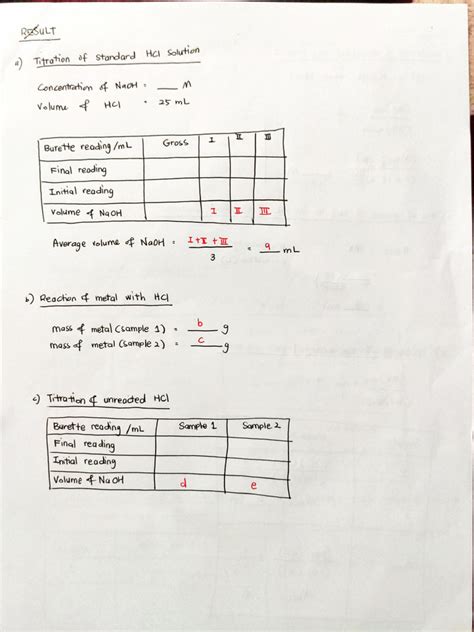 RESULT
a) Titration of Standard HCl Solution
Concentration of NaOH = ___ M
Volume of HCl = 25 mL
Burette reading /mL Gross I II III
Final reading
Initial reading
Volume of NaOH I II III
Average volume of NaOH = I + II + III / 3 = a mL
b) Reaction of metal with HCl
mass of metal (sample 1) = b g
mass of metal (sample 2) = c g
c) Titration of unreacted HCl
Burette reading /mL Sample 1 Sample 2
Final reading
Initial reading
Volume of NaOH d e